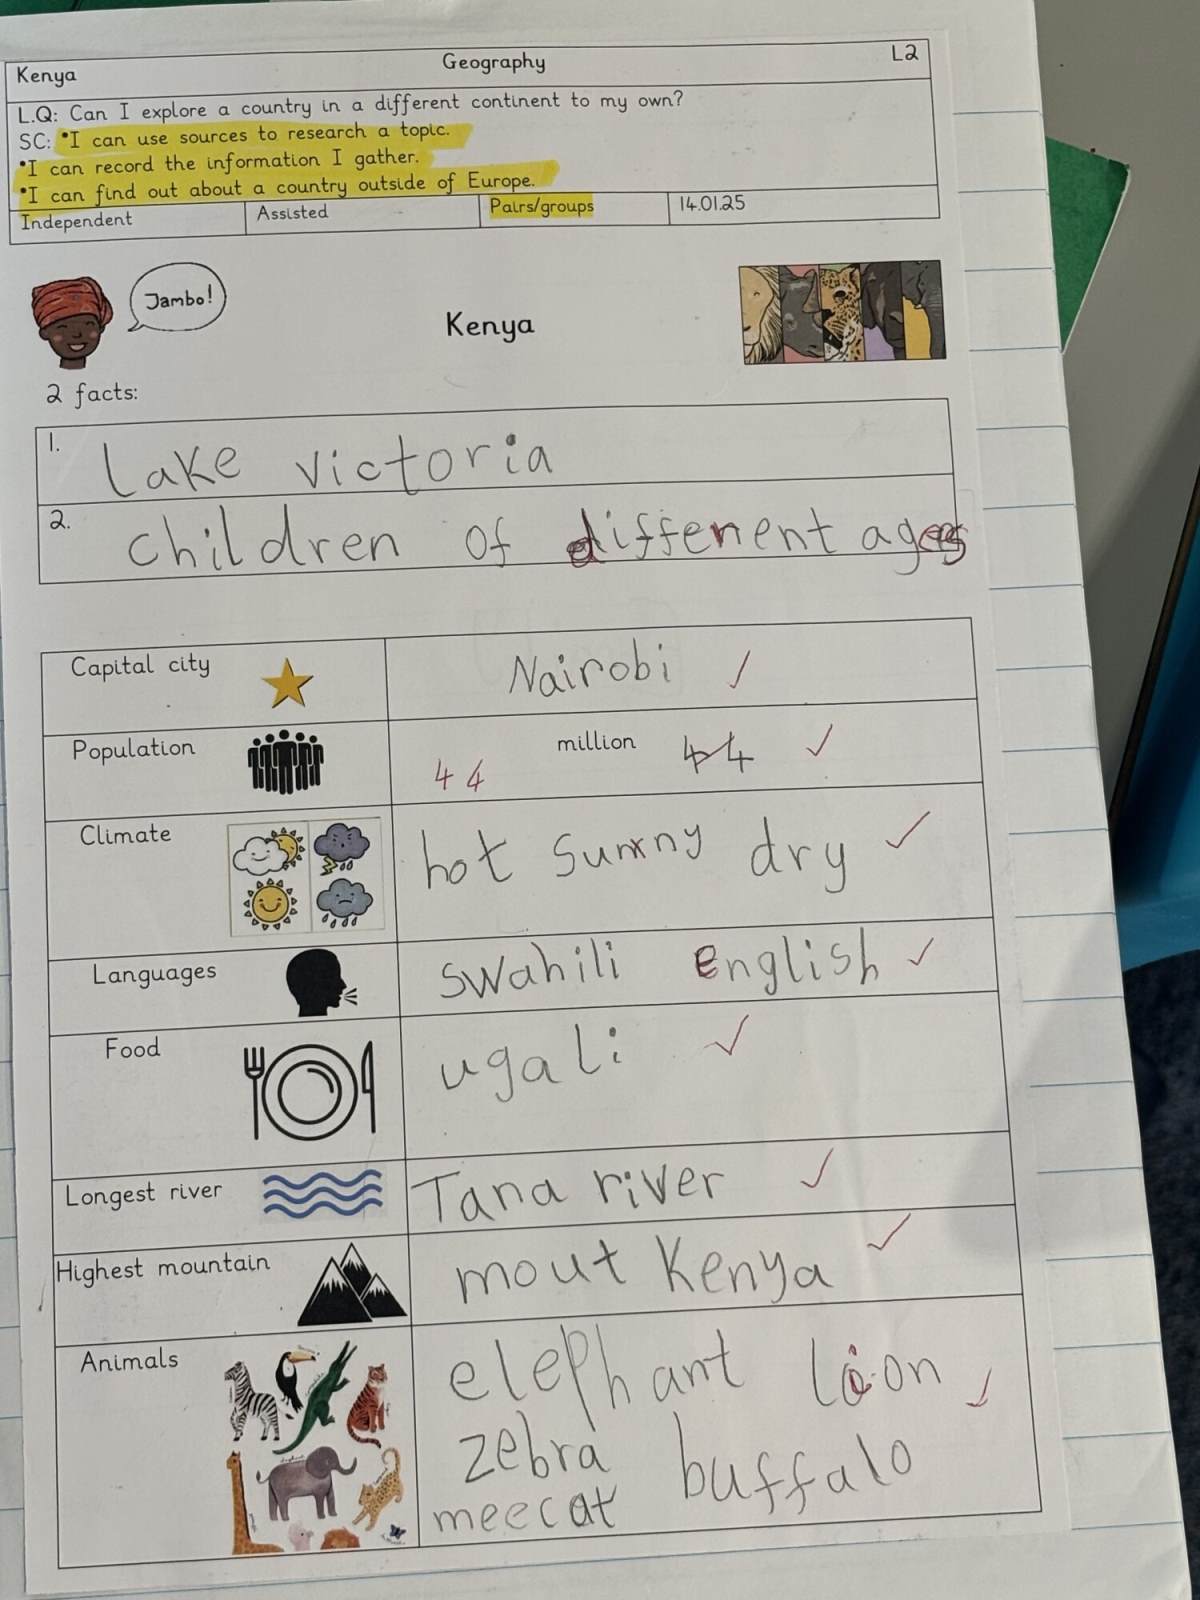 Kenya Geography L2
L.Q: Can I explore a country in a different continent to my own?
SC: •I can use sources to research a topic.
•I can record the information I gather.
•I can find out about a country outside of Europe.
Independent Assisted Pairs/groups 14.01.25
Jambo!
Kenya
2 facts:
1. Lake victoria
2. children of different ages
Capital city Nairobi
Population 44 million 44
Climate hot sunny dry
Languages swahili english
Food ugali
Longest river Tana river
Highest mountain mout Kenya
Animals elephant lion
zebra buffalo
meecat